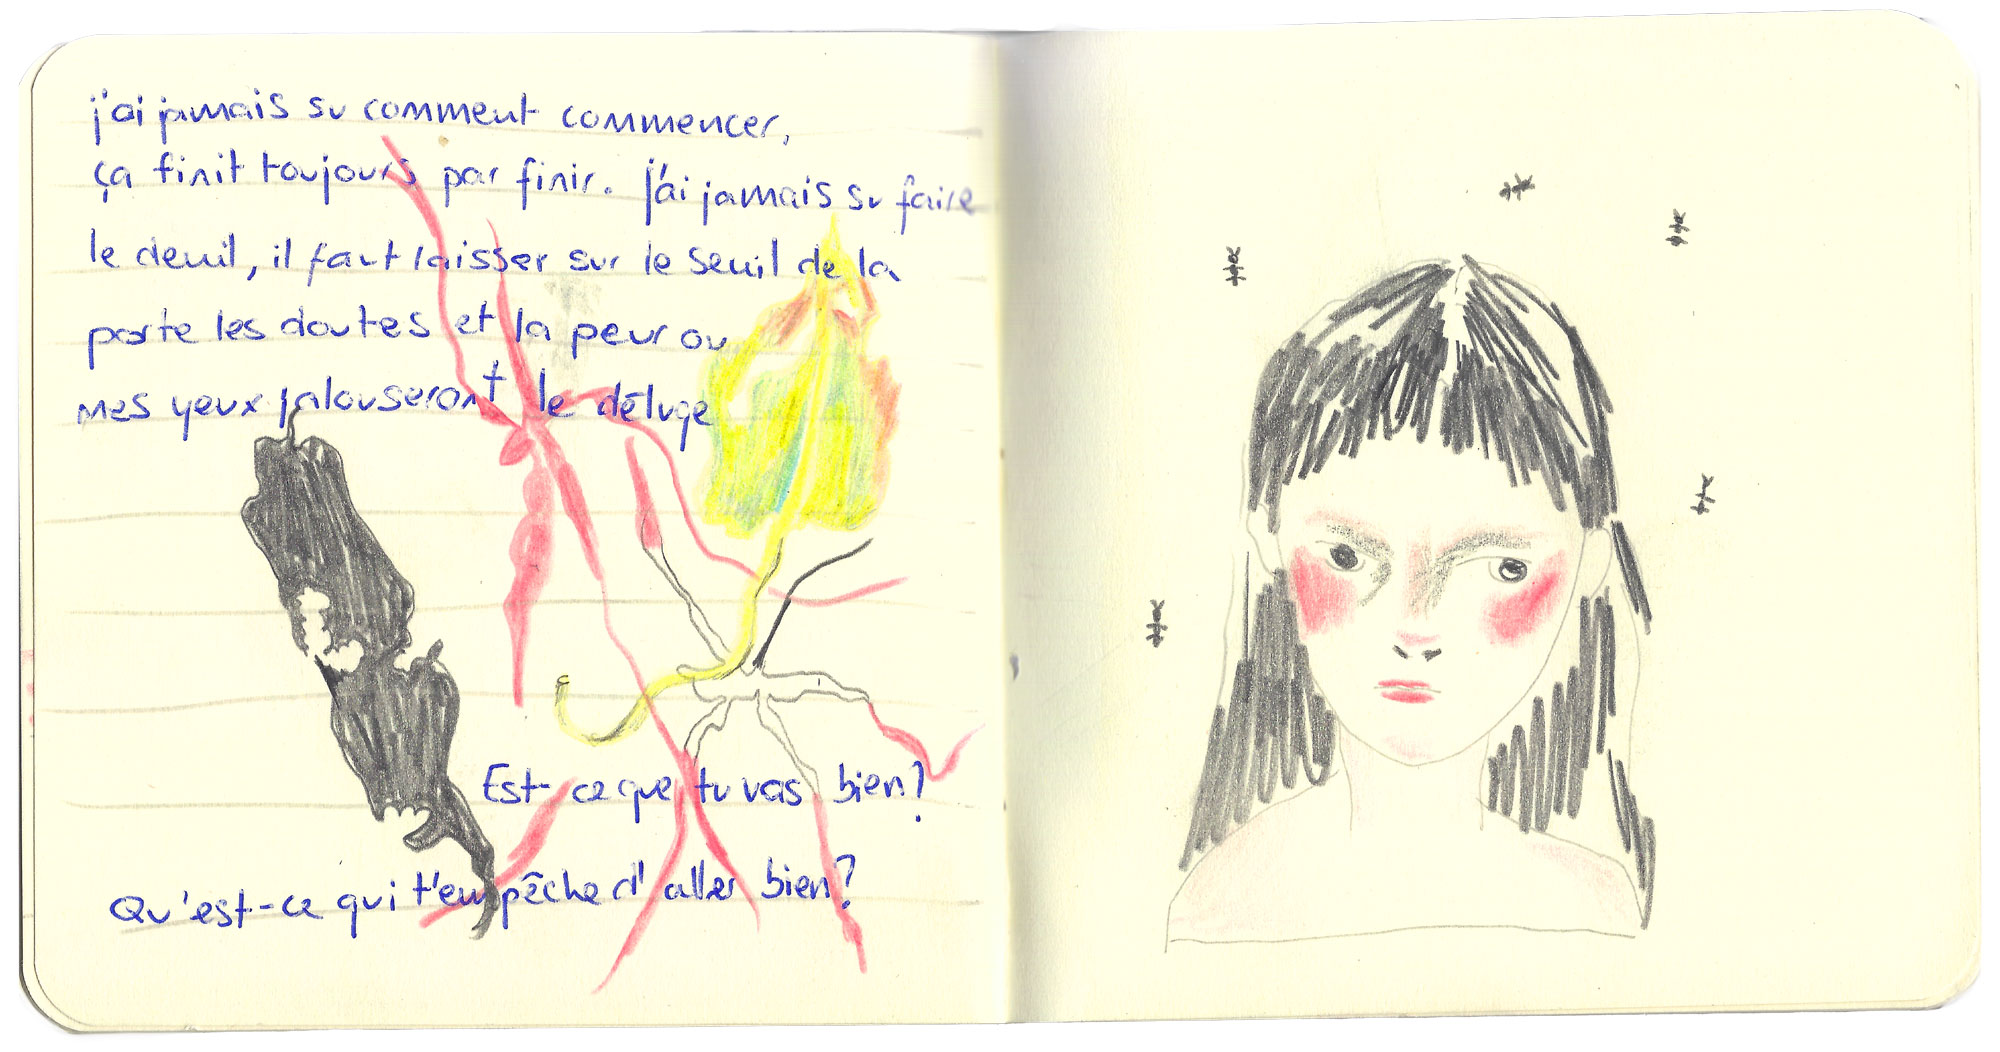 j'ai jamais su comment commencer,
ça finit toujours par finir. j'ai jamais su faire
le deuil, il faut laisser sur le seuil de la
porte les doutes et la peur ou
mes yeux jalouseront le déluge
Est-ce que tu vas bien?
Qu'est-ce qui t'empêche d'aller bien?